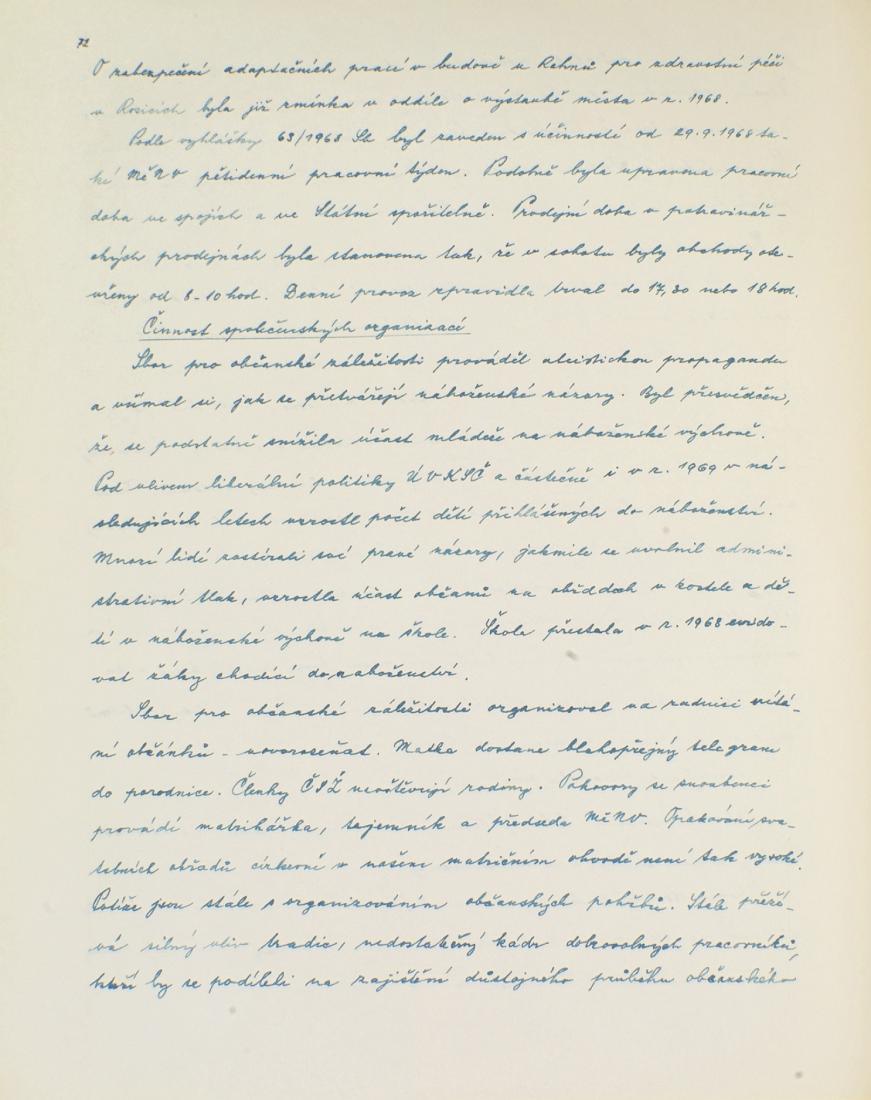 72
O zabezpečení adaptačních prací v budově u Rahnů pro zdravotní péči
v Rosicích byla již zmínka v oddíle o výstavbě města v r. 1968.
Podle vyhlášky 63/1968 Sb byl zaveden s účinností od 29.9.1968 ta-
ké MěNV pětidenní pracovní týden. Podobně byla upravena pracovní
doba ve spojích a ve Státní spořitelně. Prodejní doba v potravinář-
ských prodejnách byla stanovena tak, že v sobotu byly obchody ote-
vřeny od 8-10 hod. Denní provoz zpravidla trval do 17,30 nebo 18 hod.
Činnost společenských organizací
Sbor pro občanské záležitosti prováděl ateistickou propagandu
a všímal si, jak se přetvářejí náboženské názory. Byl přesvědčen,
že, se podstatně snížila účast mládeže na náboženské výchově.
Pod vlivem liberální politiky ÚVKSČ a částečně i v r. 1969 v ná-
sledujících letech vzrostl počet dětí přihlášených do náboženství.
Mnozí lidé zastírali své pravé názory, jakmile se uvolnil admini-
strativní tlak, vzrostla účast občanů na obřadech v kostele a dě-
tí v náboženské výchově na škole. Škola přestala v r. 1968 evido-
vat žáky chodící do náboženství.
Sbor pro občanské záležitosti organizoval na radnici vítá-
ní občánků - novorozeňat. Matka dostane blahopřejný telegram
do porodnice. Členky ČSŽ navštěvují rodiny. Pohovory se snoubenci
provádí matrikářka, tajemník a předseda MěNV. Opakování sva-
tebních obřadů církevně v našem matričním obvodě není tak vysoké.
Potíže jsou stále s organizováním občanských pohřbů. Stále přeží-
vá silný vliv tradic, nedostatečný kádr dobrovolných pracovníků,
kteří by se podíleli na zajištění důstojného průběhu občanského